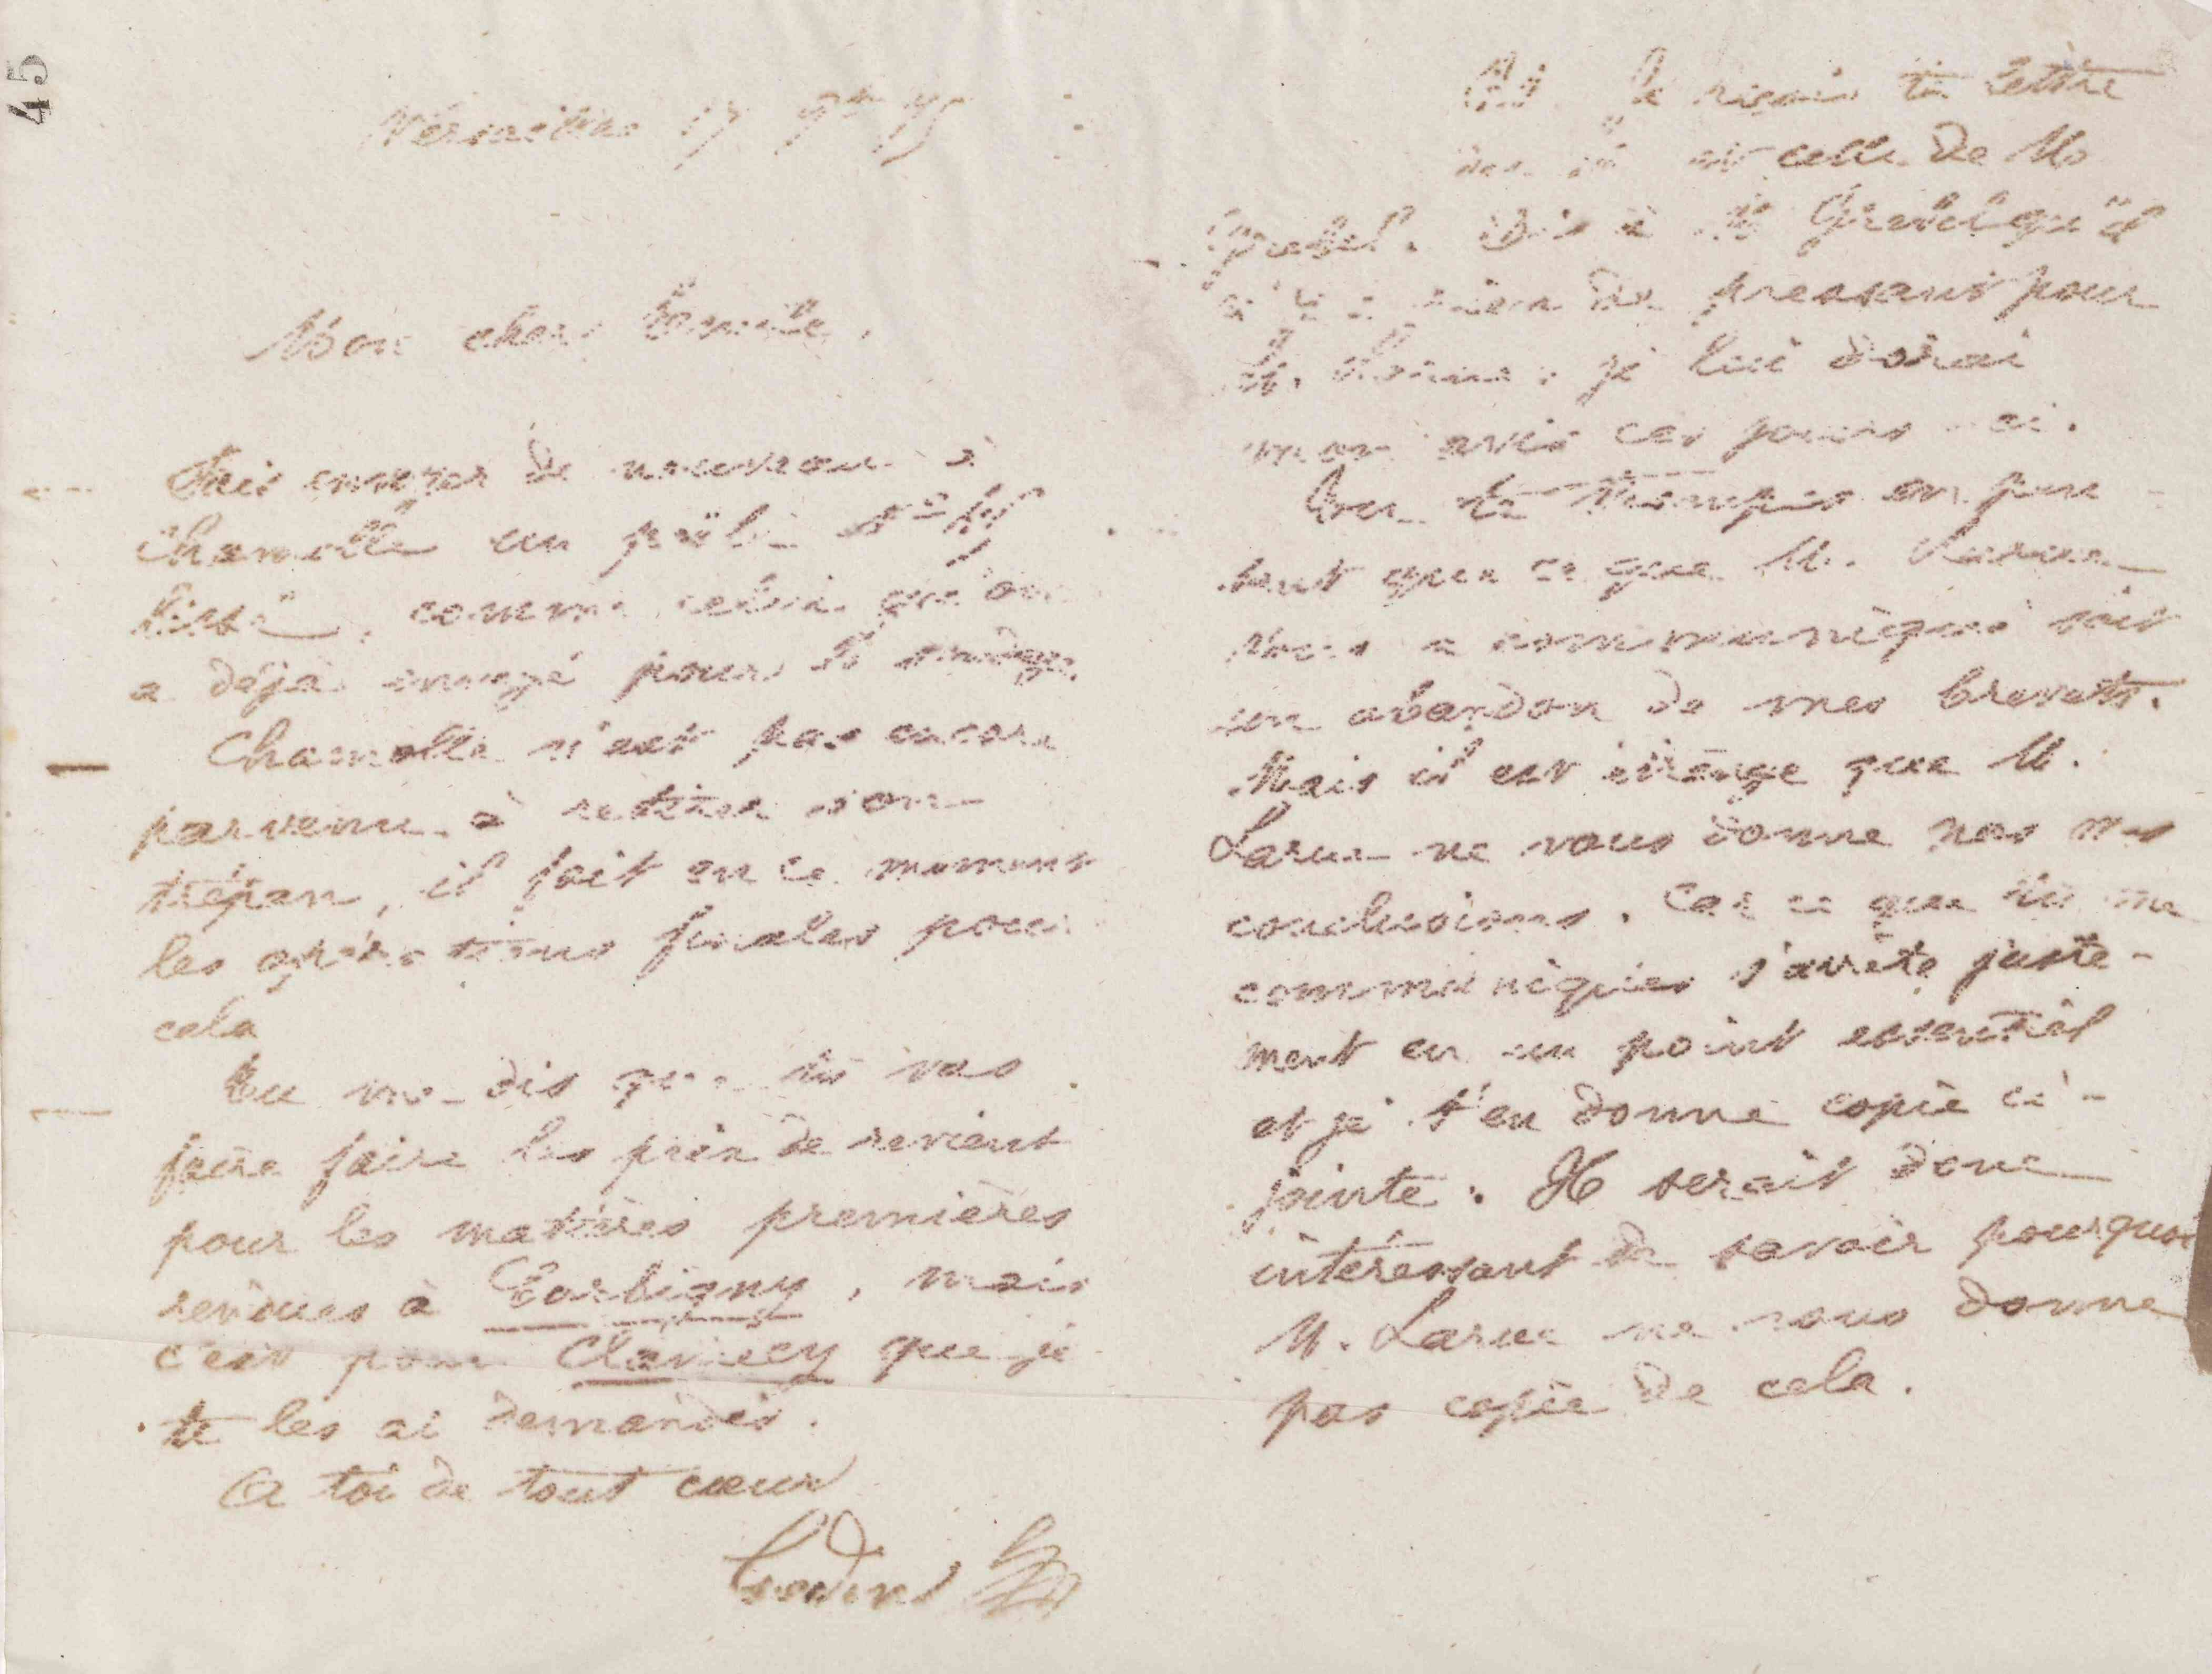 45
Versailles 17 9bre 75
Mon cher Emile,
Fais envoyer de nouveau à
Chamolle un poële No
comme celui qu'on
a déjà envoyé pour
Chamolle n'est pas encore
parvenu à retirer son
trépan, il fait en ce moment
les opérations finales pour
cela
Tu me dis que tu vas
faire faire les prix de revient
pour les matières premières
rendues à Corbigny, mais
c'est pour Clamecy que je
te les ai demandés.
A toi de tout cœur
Godin
Je reçois ta lettre
et celle de M.
Grebel. Dis à M. Grebel qu'il
n'y a rien de pressant pour
M. je lui dirai
mon avis ces jours ci.
Vous vous trompez en
que ce que M. Larue
vous a communiqué soit
un abandon de mes brevets.
Mais il est étrange que M.
Larue ne vous donne pas mes
conclusions. Car ce que tu me
communiques s'arrête juste-
ment en un point essentiel
et je t'en donne copie ci-
jointe. Il serait donc
intéressant de savoir pourquoi
M. Larue ne vous donne
pas copie de cela.